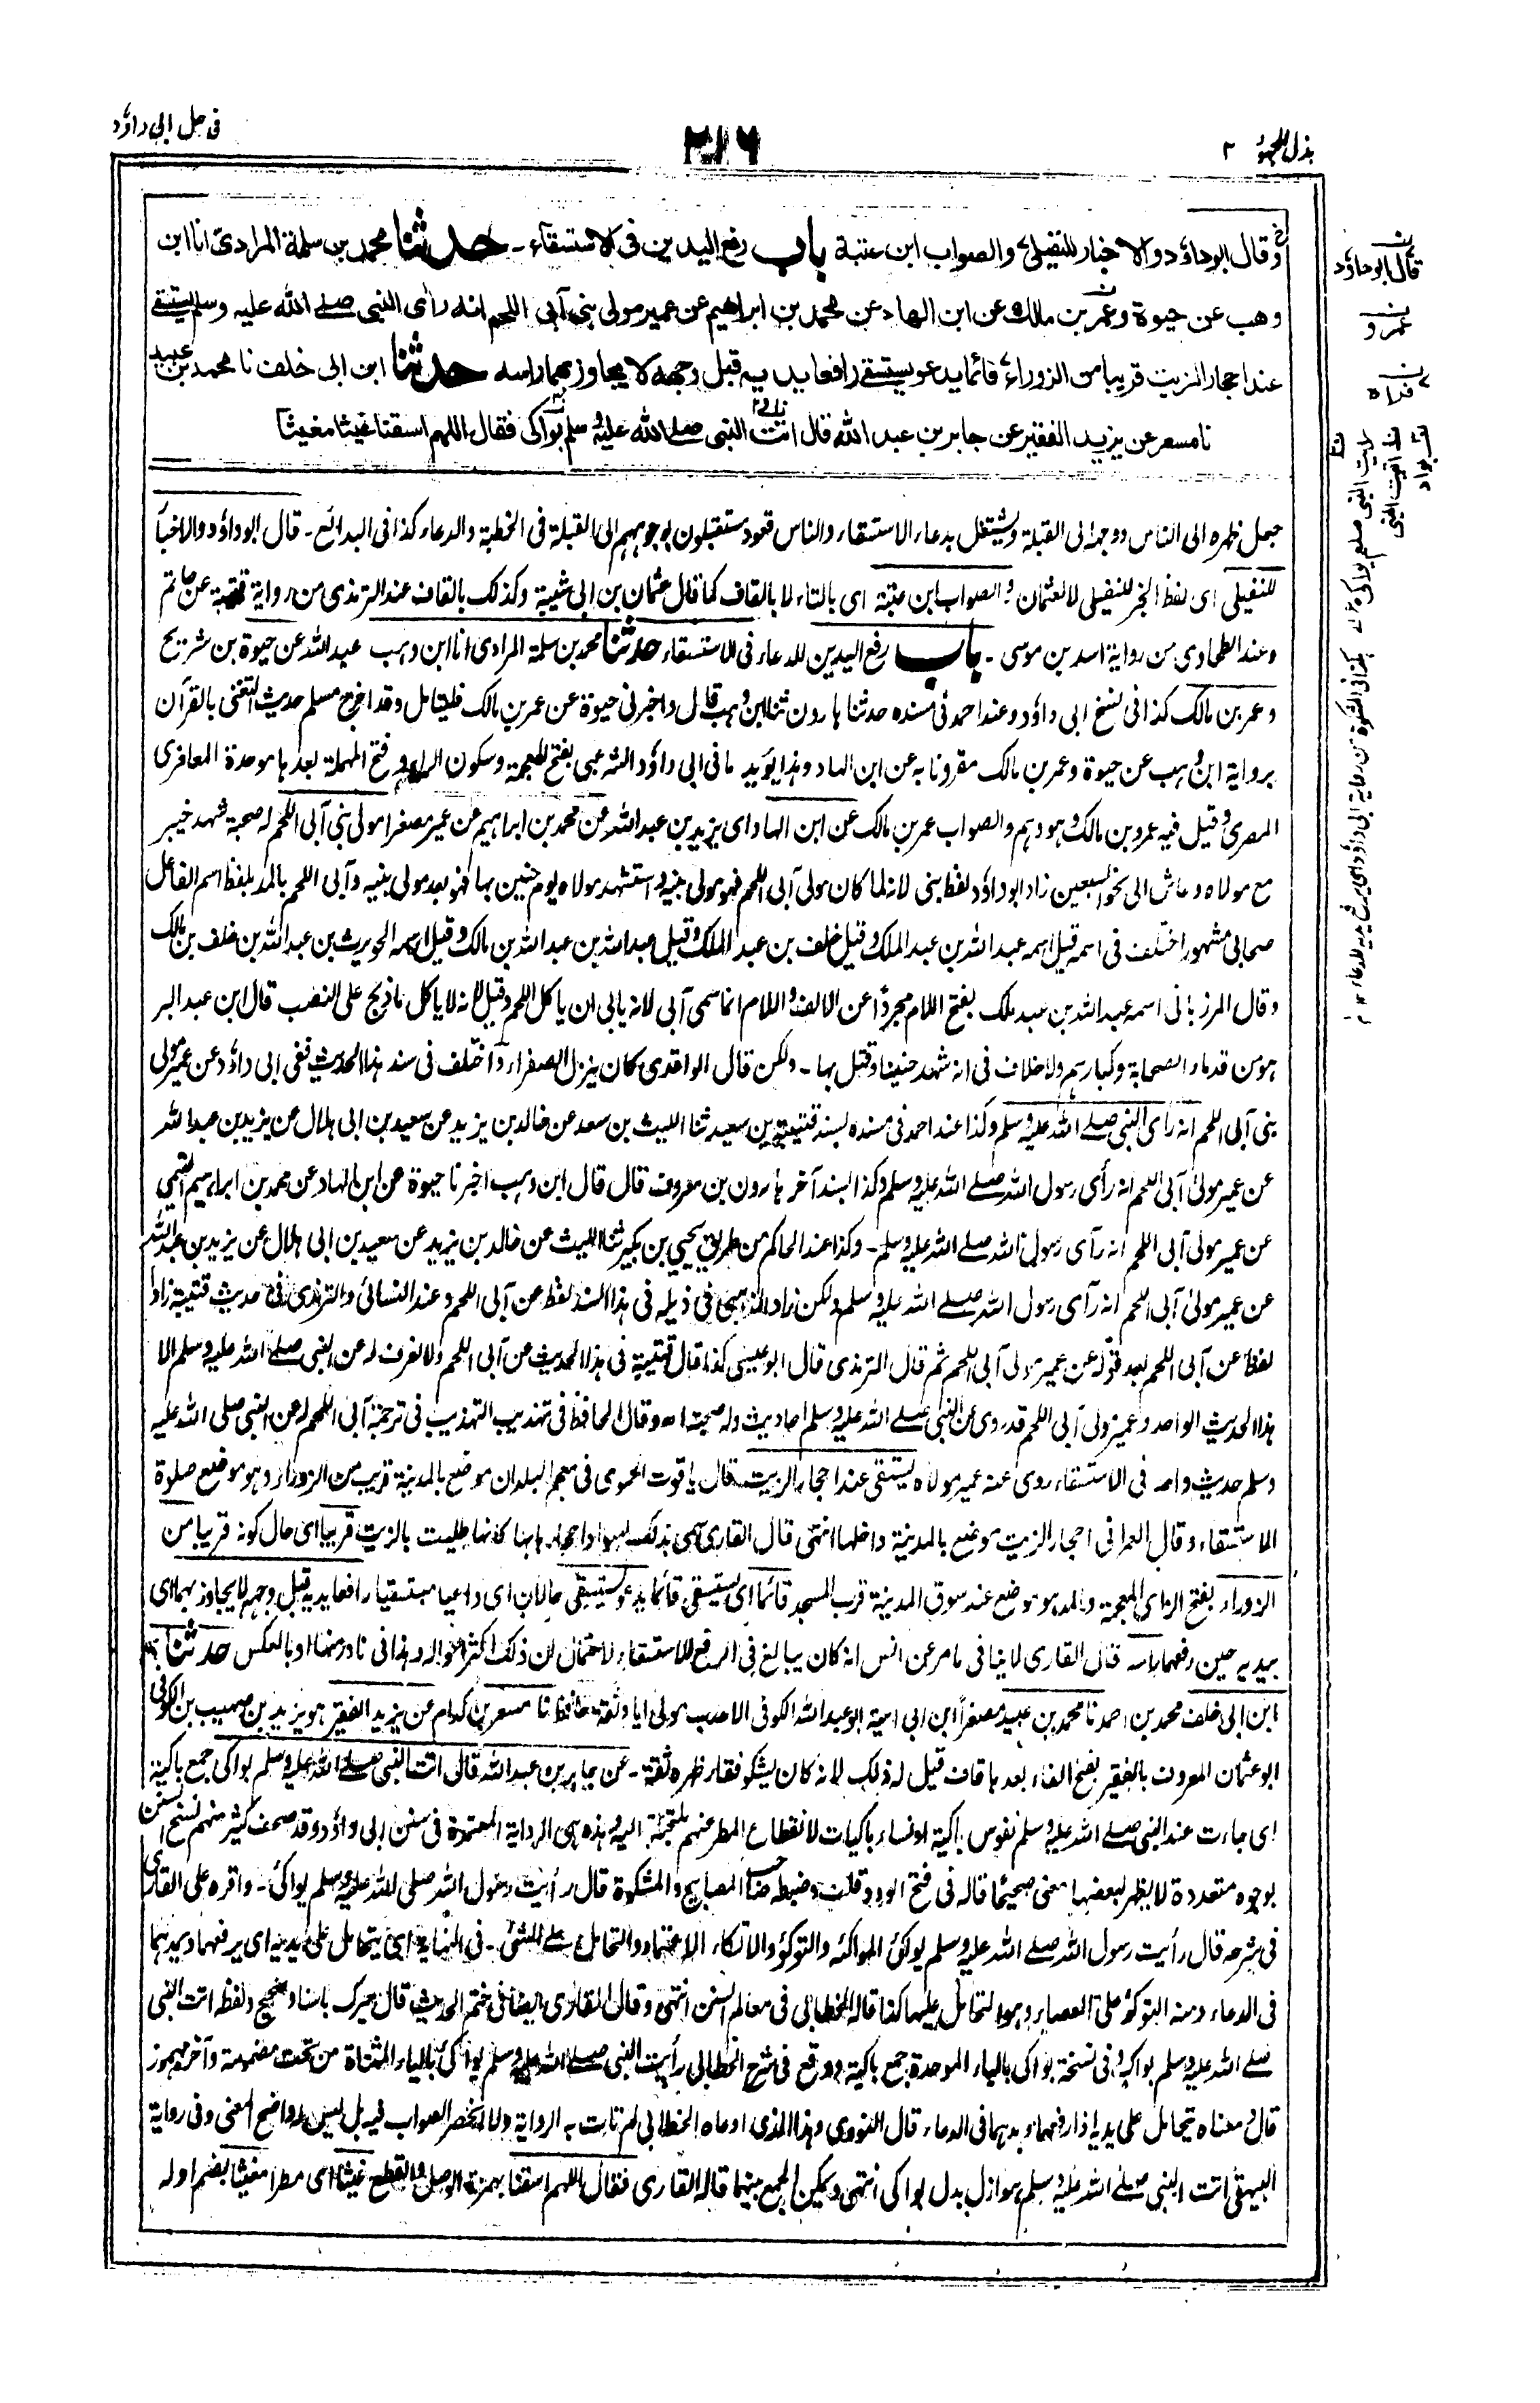 بذل المجهود ٢
٢١٦
فى حل ابى داؤد
وقال ابوداؤد والاخبار للنفيلى والصواب ابن عتبة باب رفع اليدين فى الاستسقاء - حدثنا محمد بن سلمة المرادى انا ابن
وهب عن حيوة وعمر بن مالك عن ابن الهاد عن محمد بن ابراهيم عن عمير مولى بنى آبى اللحم انه رأى النبى صلے الله عليه وسلم يستسقے
عند احجار الزيت قريبا من الزوراء قائما يدعو يستسقے رافعا يديه قبل وجهه لا يجاوز بهما راسه حدثنا ابن ابى خلف نا محمد بن عبيد
نا مسعر عن يزيد الفقير عن جابر بن عبد الله قال اتت النبى صلے الله عليه وسلم بواكى فقال اللهم اسقنا غيثا مغيثا
جعل ظهره الى الناس ووجهه الى القبلة ويشتغل بدعاء الاستسقاء والناس قعود مستقبلون بوجوههم الى القبلة فى الخطبة والدعاء كذا فى البدائع - قال ابوداؤد والاخبار
للنفيلى اى لفظ الخبر للنفيلى لا لعثمان والصواب ابن عتبة اى بالتاء لا بالقاف كما قال عثمان بن ابى شيبة وكذلك بالقاف عند الترمذى من رواية قتيبة عن حاتم
وعند الطحاوى من رواية اسد بن موسى - باب رفع اليدين للدعاء فى الاستسقاء حدثنا محمد بن سلمة المرادى انا ابن وهب عبد الله عن حيوة بن شريح
وعمر بن مالك كذا فى نسخ ابى داؤد وعند احمد فى مسنده حدثنا هارون ثنا ابن وهب قال واخبرنى حيوة عن عمر بن مالك فليتامل وقد اخرج مسلم حديث التغنى بالقرآن
برواية ابن وهب عن حيوة وعمر بن مالك مقرونا به عن ابن الهاد وهذا يؤيد ما فى ابى داؤد الشرعبى بفتح المعجمة وسكون الراء وفتح المهملة بعدها موحدة المعافرى
المصرى وقيل فيه عمرو بن مالك وهو وهم والصواب عمر بن مالك عن ابن الهاد اى يزيد بن عبد الله عن محمد بن ابراهيم عن عمير مصغرا مولى بنى آبى اللحم له صحبة شهد خيبر
مع مولاه وعاش الى نحو السبعين زاد ابوداؤد لفظ بنى لانه لما كان مولى آبى اللحم فهو مولى بنيه واستشهد مولاه يوم حنين بها فهو بعد مولى بنيه وآبى اللحم بالمد بلفظ اسم الفاعل
صحابى مشهور اختلف فى اسمه قيل اسمه عبد الله بن عبد الملك وقيل خلف بن عبد الملك وقيل عبد الله بن عبد الله بن مالك وقيل اسمه الحويرث بن عبد الله بن خلف بن مالك
وقال المرزبانى اسمه عبد الله بن عبد ملك بفتح اللام مجردا عن الالف واللام انما سمى آبى لانه يابى ان ياكل اللحم وقيل لانه لا ياكل ما ذبح على النصب قال ابن عبد البر
هو من قدماء الصحابة وكبارهم ولا خلاف فى انه شهد حنينا وقتل بها - ولكن قال الواقدى كان ينزل الصفراء واختلف فى سند هذا الحديث ففى ابى داؤد عن عمير مولى
بنى آبى اللحم انه رأى النبى صلے الله عليه وسلم وكذا عند احمد فى مسنده بسند قتيبة بن سعيد ثنا الليث بن سعد عن خالد بن يزيد عن سعيد بن ابى هلال عن يزيد بن عبد الله
عن عمير مولى آبى اللحم انه رأى رسول الله صلے الله عليه وسلم وكذا بسند آخر هارون بن معروف قال قال ابن وهب اخبرنا حيوة عن ابن الهاد عن محمد بن ابراهيم التيمى
عن عمير مولى آبى اللحم انه رآى رسول الله صلے الله عليه وسلم - وكذا عند الحاكم من طريق يحيى بن بكير ثنا الليث عن خالد بن يزيد عن سعيد بن ابى هلال عن يزيد بن عبد الله
عن عمير مولى آبى اللحم انه رآى رسول الله صلے الله عليه وسلم ولكن زاد الذهبى فى ذيله فى هذا السند لفظ عن آبى اللحم وعند النسائى والترمذى فى حديث قتيبة زادا
لفظ عن آبى اللحم بعد قوله عن عمير مولى آبى اللحم ثم قال الترمذى قال ابو عيسى كذا قال قتيبة فى هذا الحديث عن آبى اللحم ولا نعرف له عن النبى صلے الله عليه وسلم الا
هذا الحديث الواحد وعمير مولى آبى اللحم قد روى عن النبى صلے الله عليه وسلم احاديث وله صحبة اه وقال الحافظ فى تهذيب التهذيب فى ترجمة آبى اللحم له عن النبى صلى الله عليه
وسلم حديث واحد فى الاستسقاء روى عنه عمير مولاه يستسقى عند احجار الزيت قال ياقوت الحموى فى معجم البلدان موضع بالمدينة قريب من الزوراء وهو موضع صلوة
الاستسقاء وقال العمرانى احجار الزيت موضع بالمدينة داخلها انتهى قال القارى سمى بذلك لسواد احجارها بها كانها طليت بالزيت قريبا اى حال كونه قريبا من
الزوراء بفتح الزاى المعجمة والمد هو موضع عند سوق المدينة قرب المسجد قائما اى يستسقى قائما يدعو يستسقى حالان اى داعيا مستسقيا رافعا يديه قبل وجهه لا يجاوز بهما اى
بيديه حين رفعهما راسه قال القارى لا ينافى ما مر عن انس انه كان يبالغ فى الرفع للاستسقاء لاحتمال ان ذلك اكثر احواله وهذا فى نادر منها او بالعكس حدثنا
ابن ابى خلف محمد بن احمد نا محمد بن عبيد مصغرا ابن ابى امية ابو عبد الله الكوفى الاحدب مولى اياد ثقة حافظ نا مسعر بن كدام عن يزيد الفقير هو يزيد بن صهيب بن الكوفى
ابو عثمان المعروف بالفقير بفتح الفاء بعدها قاف قيل له ذلك لانه كان يشكو فقار ظهره ثقة - عن جابر بن عبد الله قال اتت النبى صلے الله عليه وسلم بواكى جمع باكية
اى جاءت عند النبى صلے الله عليه وسلم نفوس باكية او نساء باكيات لانقطاع المطر عنهم ملتجئة اليه وهذه هى الرواية المعتمدة فى سنن ابى داؤد وقد صحف كثير منهم نسخ السنن
بوجوه متعددة لا يظهر لبعضها معنى صحيحا قاله فى فتح الودود قلت وضبطه صاحب المصابيح والمشكوة قال رأيت رسول الله صلى الله عليه وسلم يواكئ - واقره على القارى
فى شرحه قال رأيت رسول الله صلے الله عليه وسلم يواكئ المواكئة والتوكؤ والاتكاء الاعتماد والتحامل على الشئ - فى النهاية اى يتحامل على يديه اى يرفعهما ويمدهما
فى الدعاء ومنه التوكؤ على العصاء وهو التحامل عليها كذا قاله الخطابى فى معالم السنن انتهى وقال القارى ايضا فى ختم الحديث قال ميرك باسناد صحيح ولفظه اتت النبى
صلے الله عليه وسلم بواكيه وفى نسخة بواكى بالباء الموحدة جمع باكية ووقع فى شرح الخطابى رأيت النبى صلے الله عليه وسلم يواكئ بالياء المثناة من تحت مضمومة وآخره مهموز
قال ومعناه يتحامل على يديه اذا رفعهما ومدهما فى الدعاء قال النووى وهذا الذى ادعاه الخطابى لم تات به الرواية ولا انحصر الصواب فيه بل ليس هو واضح المعنى وفى رواية
البيهقى اتت النبى صلے الله عليه وسلم هوازل بدل بواكى انتهى ويمكن الجمع بينهما قاله القارى فقال اللهم اسقنا بهمزة الوصل والقطع غيثا اى مطرا مغيثا بضم اوله
قال ابوداؤد
عمرو